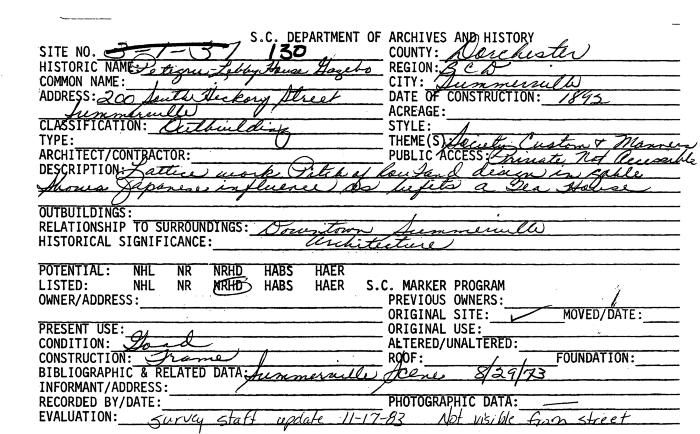 S.C. DEPARTMENT OF ARCHIVES AND HISTORY
SITE NO. 3-1-37 130 COUNTY: Dorchester
HISTORIC NAME: Petigru-Lebby House Gazebo REGION: BCD
COMMON NAME: CITY: Summerville
ADDRESS: 200 South Hickory Street DATE OF CONSTRUCTION: 1895
Summerville ACREAGE:
CLASSIFICATION: Outbuilding STYLE:
TYPE: THEME(S) Society Custom & Manners
ARCHITECT/CONTRACTOR: PUBLIC ACCESS: Private, Not Accessible
DESCRIPTION: Lattice work Pitch of roof and design in gable
shows Japanese influence as befits a Tea House
OUTBUILDINGS:
RELATIONSHIP TO SURROUNDINGS: Downtown Summerville
HISTORICAL SIGNIFICANCE: Architecture
POTENTIAL: NHL NR NRHD HABS HAER
LISTED: NHL NR NRHD HABS HAER S.C. MARKER PROGRAM
OWNER/ADDRESS: PREVIOUS OWNERS:
ORIGINAL SITE: ✓ MOVED/DATE:
PRESENT USE: ORIGINAL USE:
CONDITION: Good ALTERED/UNALTERED:
CONSTRUCTION: Frame ROOF: FOUNDATION:
BIBLIOGRAPHIC & RELATED DATA: Summerville Scene 8/29/73
INFORMANT/ADDRESS:
RECORDED BY/DATE: PHOTOGRAPHIC DATA: —
EVALUATION: survey staff update 11-17-83 Not visible from street